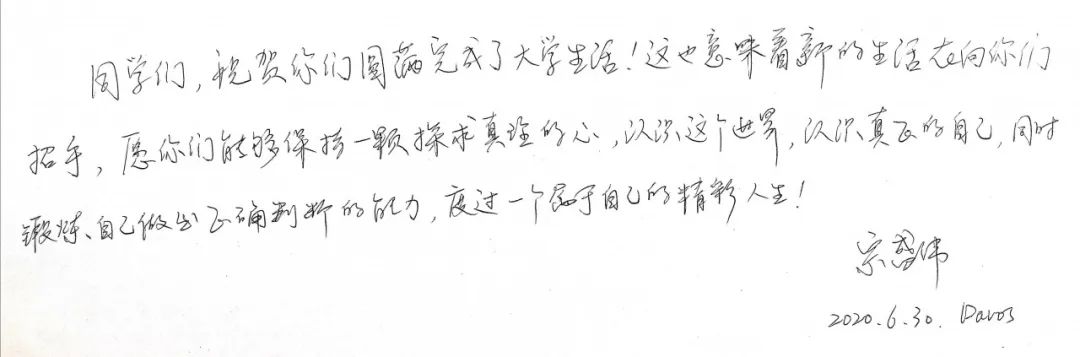 同学们，祝贺你们圆满完成了大学生活！这也意味着新的生活在向你们
招手，愿你们能够保持一颗探求真理的心，认识这个世界，认识真正的自己，同时
锻炼自己做出正确判断的能力，度过一个属于自己的精彩人生！
宗伟
2020.6.30. Davos